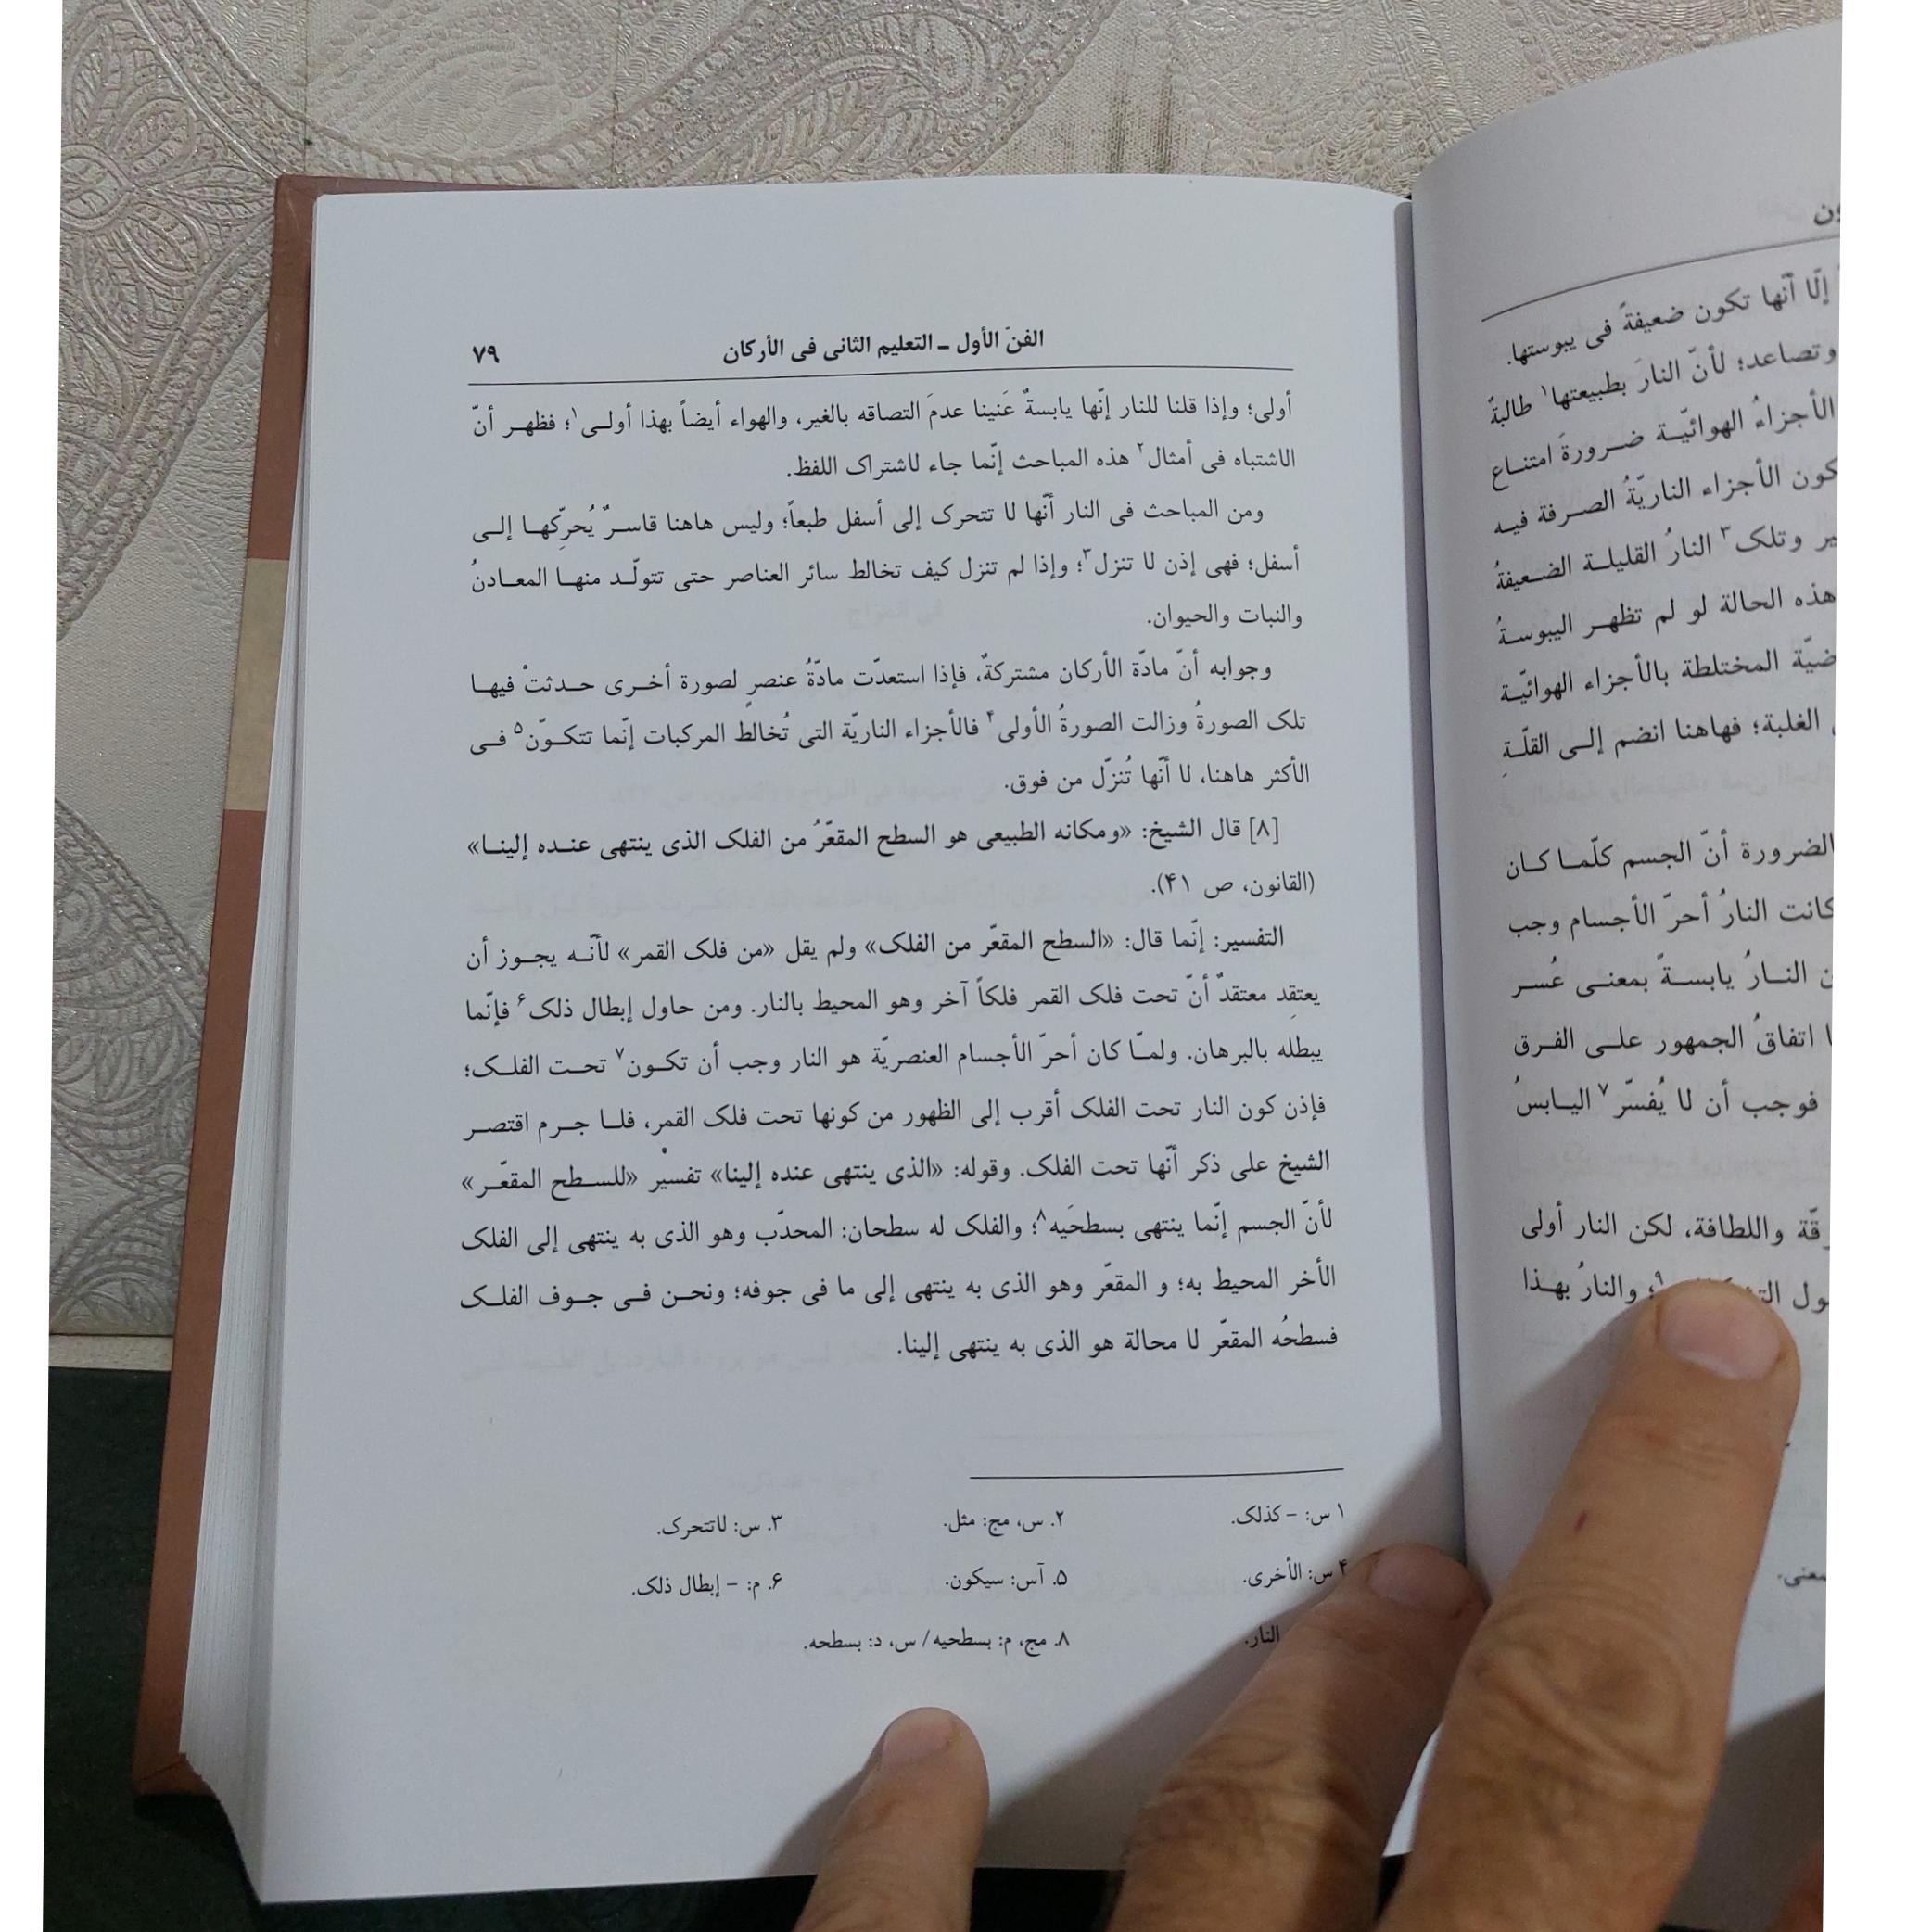 الفنّ الأول ـ التعليم الثانى فى الأركان ٧٩
أولى؛ وإذا قلنا للنار إنّها يابسةٌ عَنينا عدمَ التصاقه بالغير، والهواء أيضاً بهذا أولـى١؛ فظهـر أنّ
الاشتباه فى أمثال٢ هذه المباحث إنّما جاء لاشتراك اللفظ.
ومن المباحث فى النار أنّها لا تتحرک إلى أسفل طبعاً؛ وليس هاهنا قاسـرٌ يُحرِّكهـا إلـى
أسفل؛ فهى إذن لا تنزل٣؛ وإذا لم تنزل كيف تخالط سائر العناصر حتى تتولّـد منهـا المعـادنُ
والنبات والحيوان.
وجوابه أنّ مادّة الأركان مشتركةٌ، فإذا استعدّت مادّةُ عنصرٍ لصورة أخـرى حـدثتْ فيهـا
تلک الصورةُ وزالت الصورةُ الأولى۴ فالأجزاء الناريّة التى تُخالط المركبات إنّما تتكـوّن۵ فـى
الأكثر هاهنا، لا أنّها تُنزّل من فوق.
[٨] قال الشيخ: «ومكانه الطبيعى هو السطح المقعّرُ من الفلک الذى ينتهى عنـده إلينـا»
(القانون، ص ۴۱).
التفسير: إنّما قال: «السطح المقعّر من الفلک» ولم يقل «من فلک القمر» لأنّـه يجـوز أن
يعتقِد معتقدٌ أنّ تحت فلک القمر فلكاً آخر وهو المحيط بالنار. ومن حاول إبطال ذلک۶ فإنّما
يبطله بالبرهان. ولمـّا كان أحرّ الأجسام العنصريّة هو النار وجب أن تكـون٧ تحـت الفلـک؛
فإذن كون النار تحت الفلک أقرب إلى الظهور من كونها تحت فلک القمر، فلـا جـرم اقتصـر
الشيخ على ذكر أنّها تحت الفلک. وقوله: «الذى ينتهى عنده إلينا» تفسيْر «للسـطح المقعّـر»
لأنّ الجسم إنّما ينتهى بسطحَيه٨؛ والفلک له سطحان: المحدّب وهو الذى به ينتهى إلى الفلک
الأخر المحيط به؛ و المقعّر وهو الذى به ينتهى إلى ما فى جوفه؛ ونحـن فـى جـوف الفلـک
فسطحُه المقعّر لا محالة هو الذى به ينتهى إلينا.
١ س: – كذلک. ٢. س، مج: مثل. ٣. س: لاتتحرک.
۴ س: الأخرى. ۵. آس: سيكون. ۶. م: – إبطال ذلک.
النار. ٨. مج، م: بسطحيه/ س، د: بسطحه.
ون
إلّا أنّها تكون ضعيفةً فى يبوستها.
وتصاعد؛ لأنّ النارَ بطبيعتها١ طالبةٌ
الأجزاءُ الهوائيّـة ضـرورةَ امتنـاع
كون الأجزاء الناريّةُ الصـرفة فيـه
ير وتلک٣ النارُ القليلـة الضـعيفةُ
هذه الحالة لو لم تظهـر اليبوسـةُ
ضيّة المختلطة بالأجزاء الهوائيّـة
الغلبة؛ فهاهنا انضم إلـى القلّـةِ
الضرورة أنّ الجسم كلّمـا كـان
كانت النارُ أحرّ الأجسام وجب
ن النـارُ يابسـةً بمعنـى عُسـر
ا اتفاقُ الجمهور علـى الفـرق
فوجب أن لا يُفسّر٧ اليـابسُ
رقّة واللطافة، لكن النار أولى
والنارُ بهـذا